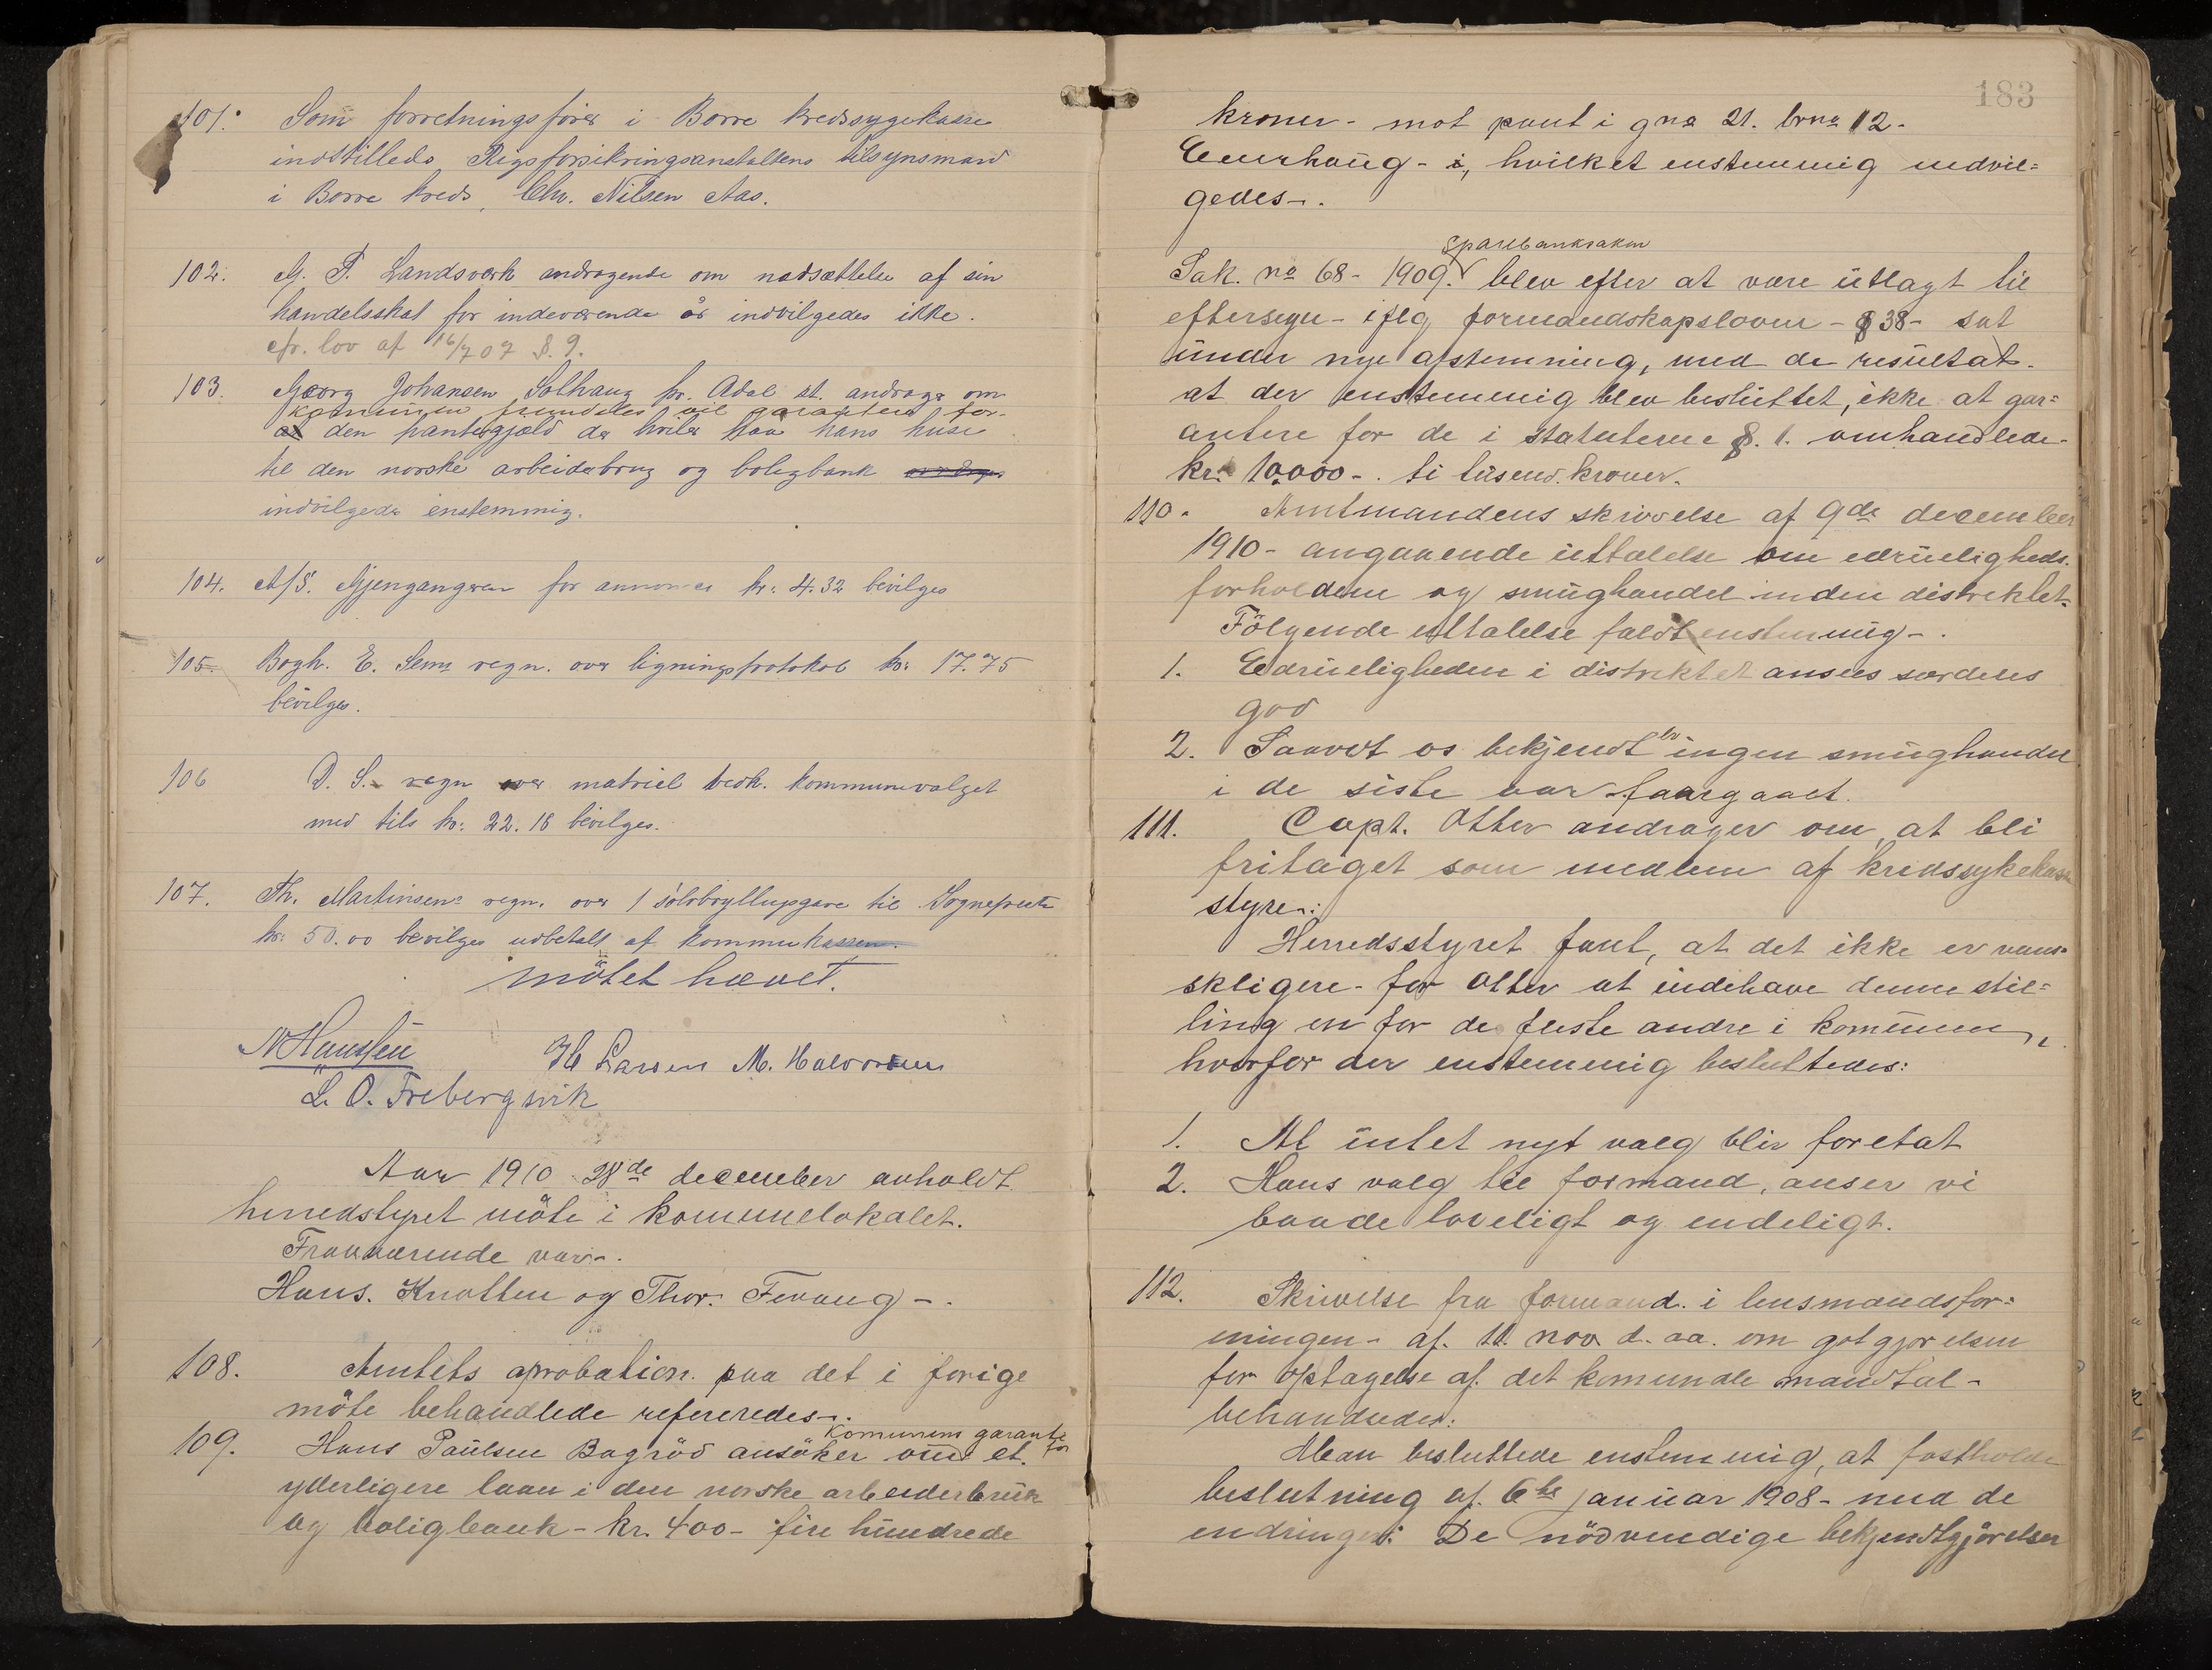 101. Som forretningsfører i Borre kredssygekasse
indstilledes Rigsforsikringsanstaltens tilsynsmand
i Borre kreds, Chr. Nilsen Aas.
102. M. T. Landsværk andragende om nedsættelse af sin
handelsskat for indeværende år indvilgedes ikke.
cfr. lov af 16/7 07 §. 9.
103. Georg Johansen Solhaug pr. Adal st. andrager om
kommunen fremdeles vil garantere for
den pantegjæld der hviler paa hans huse
til den norske arbeiderbrug og boligbank
indvilgedes enstemmig.
104. A/S. Gjengangeren for annoncer kr: 4.32 bevilges
105. Bogh. E. Sems regn. over ligningsprotokol kr: 17.75
bevilges.
106 D. S. regn over matriel vedk. kommunevalget
med tils kr: 22.18 bevilges.
107. Th. Martinsens regn. over 1 sølvbryllupgave til Sognepresten
kr: 50.00 bevilges udbetalt af kommunekassen.
mötet hævet.
N Hanssen H Larsen M. Halvorsen
L. O. Frebergsvik
Aar 1910 28de december avholdt
herredstyret möte i kommunelokalet.
Fraværende var-.
Hans. Knotten og Thor. Fevang -.
108. Amtets aprobation. paa det i forige
möte behandlede refereredes-.
Komunens garante for
109. Hans Paulsen Bagröd ansöker om et.
yderligere laan i den norske arbeiderbruk
og boligbank - kr. 400- fire hundrede
183
kroner - mot pant i gno 21. brno 12-
hvilket enstemmig indvil=
gedes-.
Sparebanksaken
Sak. no 68- 1909. blev efter at være utlagt til
eftersyn - iflg formandskapsloven - § 38- sat
under nye afstemning, med de resultat-
at der enstemmig blev besluttet, ikke at gar=
antere for de i statuterne §. 1. omhandlede-
kr: 10.000-. ti tusend. kroner.
110. Amtmandens skrivelse af 9de december
1910- angaaende uttalelse om edrueligheds-
forholdene og smughandel inden distriktet.
Fölgende uttalelse faldt enstemmig-.
1. Edrueligheden i distriktet ansees særdeles
god
2. Saavidt os bekjendt er ingen smughandel
i de siste aar faaregaaet.
111. Capt. Otter andrager om, at bli
fritaget som medlem af kredssykekasse
styre-:
Herredsstyret fant, at det ikke er vans=
skligere- for Otter at indehave denne stil=
ling en for de fleste andre i komunen,
hvorfor der enstemmig besluttedes:
1. At intet nyt valg blir foretat
2. Hans valg til formand, anser vi
baade loveligt og endeligt.
112. Skrivelse fra formand. i lensmandsfor=
eningen- af. 11. nov. d. aa. om gotgjorelsen
for optagelse af. det komunale mandtal-
behandledes:
Man besluttede enstemmig, at fastholde
beslutning af. 6te januar 1908- med de
endringer: De nödvendige bekjendtgjörelser